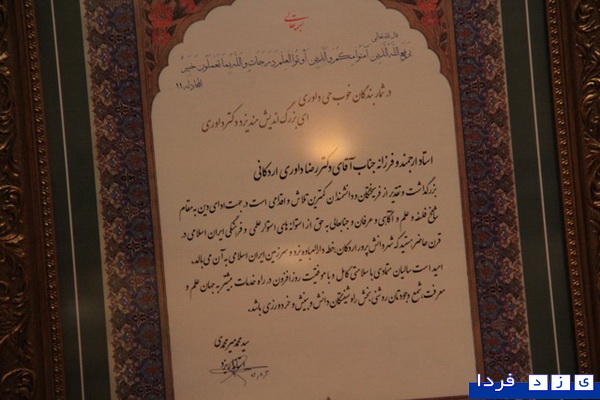 بسمه تعالی
قال الله تعالی
یرفع الله الذین آمنوا منکم والذین اوتوا العلم درجات والله بما تعملون خبیر
المجادله ١١
در شمار بندگان خوب حی داوری
ای بزرگ اندیش مند یزد دکتر داوری
استاد ارجمند و فرزانه جناب آقای دکتر رضا داوری اردکانی
بزرگداشت و تقدیر از فرهیختگان و دانشمندان کمترین تلاش و اقدامی است در جهت ادای دین به مقام
شامخ فلسفه و علم و آگاهی و عرفان و جنابعالی به حق از استوانه های استوار علمی و فرهنگی ایران اسلامی در
قرن حاضر هستید که شهر دانش پرور اردکان، خطه دارالعباده یزد و سرزمین ایران اسلامی به آن می بالد.
امید است سالیان متمادی با سلامتی کامل و با موفقیت روزافزون در راه خدمات بیشتر به جهان علم و
معرفت، شمع وجودتان روشنی بخش راه شیفتگان دانش و بینش و خردورزی باشد.
سید محمد میرمحمدی
استاندار یزد
یزد فردا